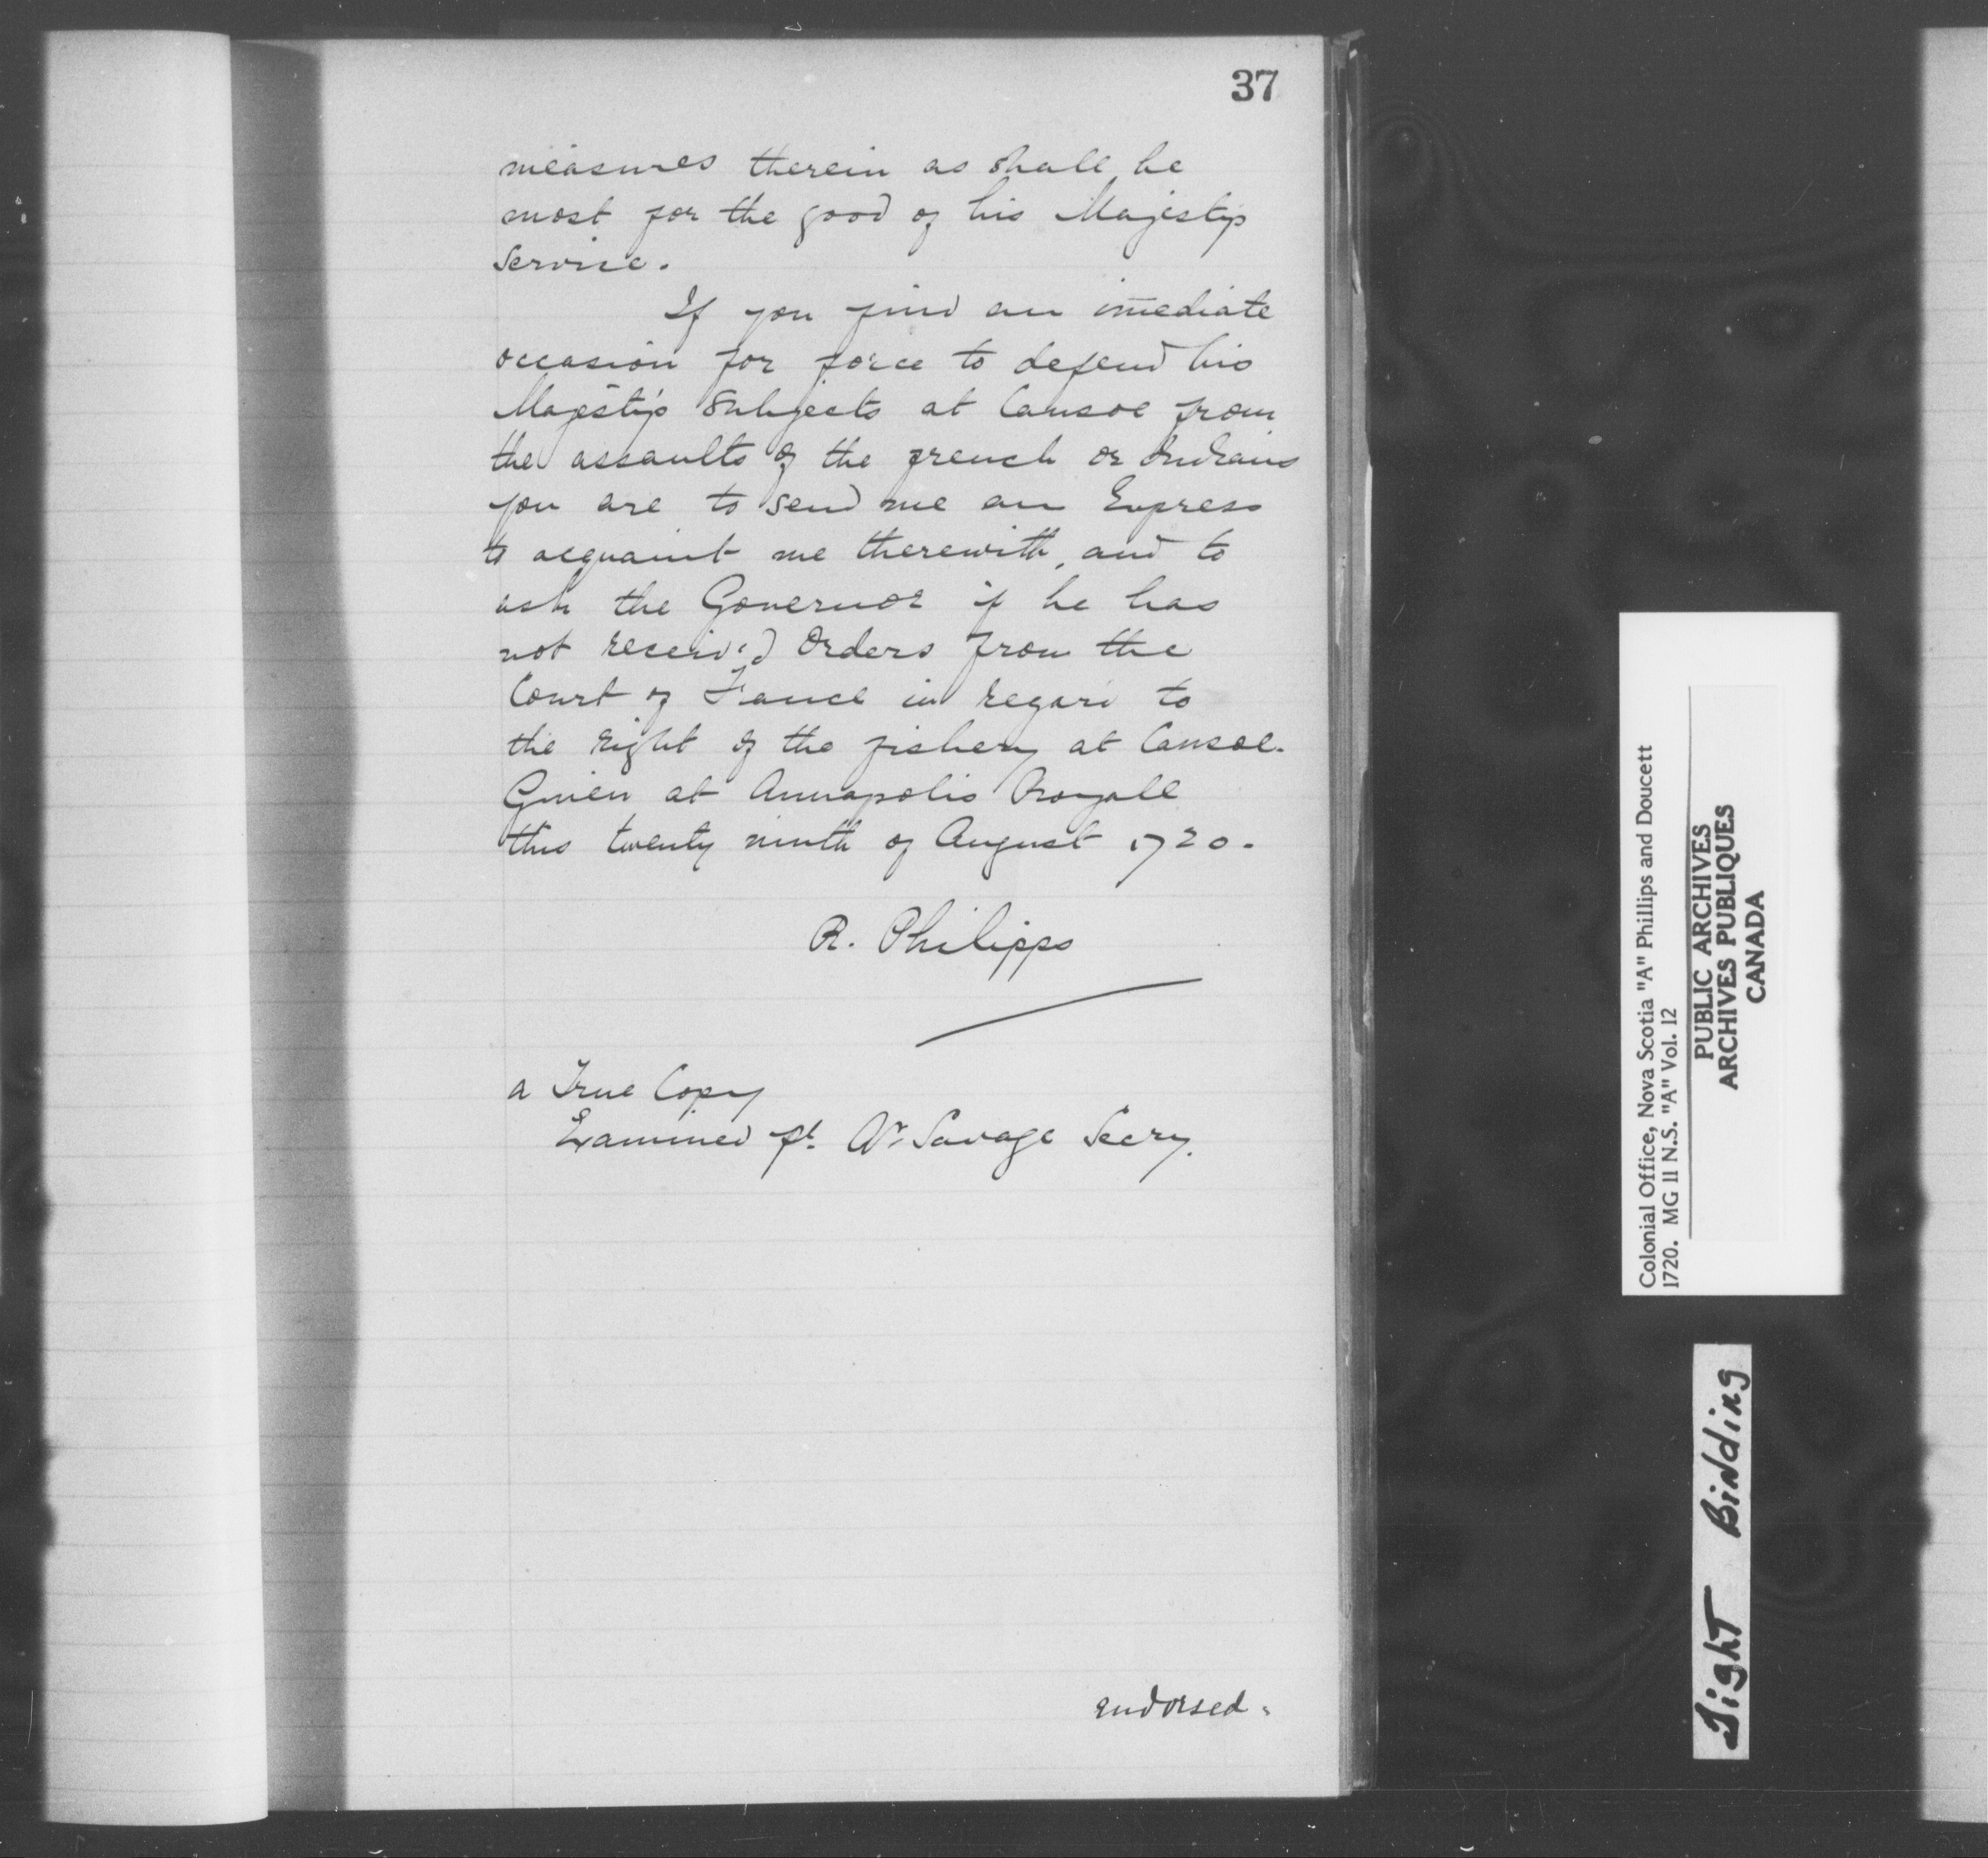 37
measures therein as shall be
most for the good of his Majestys
Service.
If you find an imediate
occasion for force to defend his
Majesty's Subjects at Cansoe from
the assaults of the french or Indians
you are to send me an Express
to acquaint me therewith, and to
ask the Governor if he has
not receiv'd Orders from the
Court of France in regard to
the right of the fishery at Cansoe.
Given at Annapolis Royall
this twenty ninth of August 1720.
R. Philipps
a True Copy
Examined pr Ar Savage Secry.
endorsed.
Colonial Office, Nova Scotia "A" Phillips and Doucett
1720. MG 11 N.S. "A" Vol. 12
PUBLIC ARCHIVES
ARCHIVES PUBLIQUES
CANADA
Tight Binding